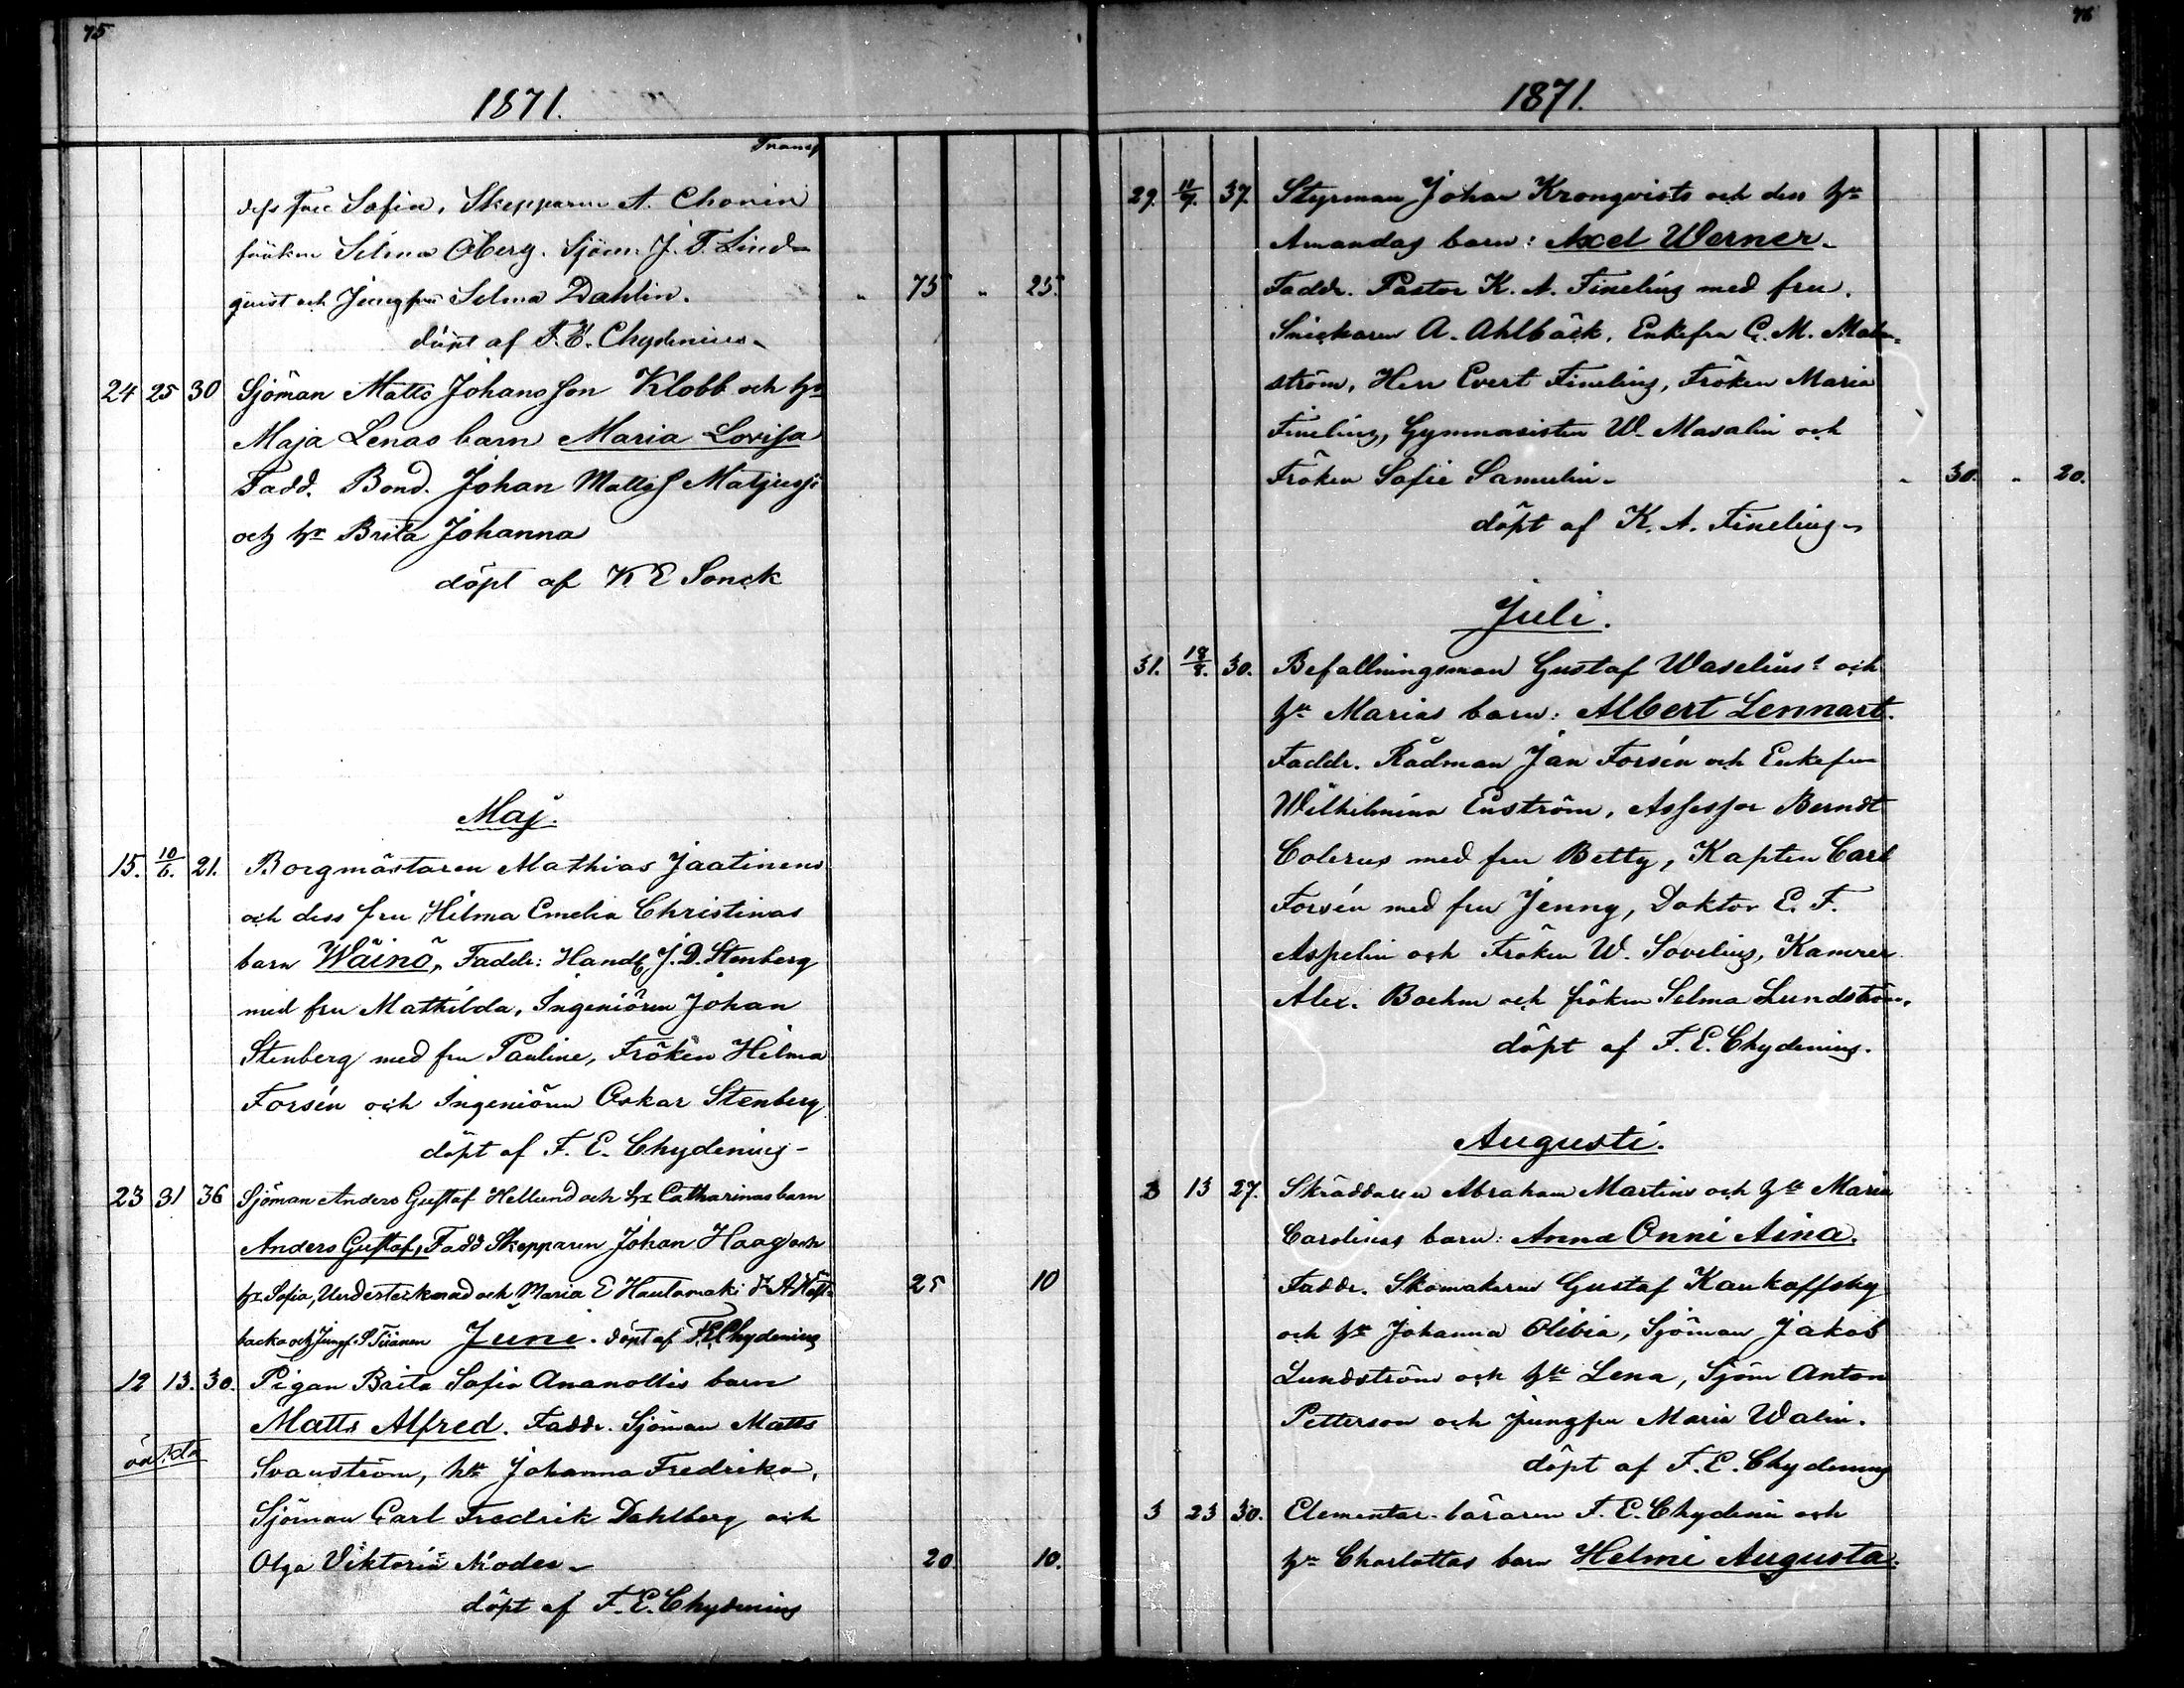 75
1871.
Transp
dess fru Sofia, Skepparen A. Chorin
fröken Selma Öberg. Sjöm. J. F. Lind-
quist och Jungfru Selma Dahlin. " 75 " 25.
döpt af F. E. Chydenius.
24 25 30 Sjöman Matts Johansson Klobb och hu
Maja Lenas barn Maria Lovisa
Fadd. Bond. Johan Mattss
och hu Brita Johanna
döpt af K E Sonck
Maj.
15. 10/6. 21. Borgmästaren Mathias Jaatinens
och dess fru Hilma Emelia Christinas
barn Wäinö, Faddr: Handl J. D. Stenberg
med fru Mathilda, Ingeniören Johan
Stenberg med fru Pauline, Fröken Hilma
Forsén och Ingeniören Oskar Stenberg
döpt af F. E. Chydenius-
23 31 36 Sjöman Anders Gustaf Hellund och hu Catharinas barn
Anders Gustaf, Fadd Skepparen Johan Haag och
hu Sofia, Undertecknad och Maria E Hautamäki 25 10
backa och Jungf. S Tiänen Juni. döpt af F.E.Chydenius
12 13. 30. Pigan Brita Sofia Ananollis barn
Matts Alfred. Faddr. Sjöman Matts
oäkta Svanström, hu Johanna Fredrika,
Sjöman Carl Fredrik Dahlberg och
Olga Viktoria Moder- 20. 10.
döpt af F. E. Chydenius
76
1871.
29. 11/7. 37. Styrman Johan Kronqvists och dess hu
Amandas barn: Axel Werner.
Faddr. Pastor K. A. Finelius med fru.
Snickaren A. Ahlbäck, Enkefru C. M. Malm-
ström, Herr Evert Finelius, Fröken Maria
Finelius, Gymnasisten W. Masalin och
Fröken Sofie Samulin. " 30. " 20.
döpt af K. A. Finelius-
Juli.
31. 18/8. 30. Befallningsman Gustaf Waselius' och
hu Marias barn: Albert Lennart.
Faddr. Rådman Jan Forsén och Enkefru
Wilhelmina Enström, Assessor Berndt
Colerus med fru Betty, Kapten Carl
Forsén med fru Jenny, Doktor E. F.
Aspelin och Fröken W. Sovelius, Kamrer
Alex. Boehm och fröken Selma Lundström.
döpt af F. E. Chydenius.
Augusti.
3 13 27. Skräddaren Abraham Martins och hu Maria
Carolinas barn: Anna Onni Aina.
Faddr. Skomakaren Gustaf Kaukoffsky
och hu Johanna Olibia, Sjöman Jakob
Lundström och hu Lena, Sjöm Anton
Petterson och jungfru Maria Walin.
döpt af F. E. Chydenius
3 23 30. Elementar-läraren F. E. Chydenii och
hu Charlottas barn Helmi Augusta.